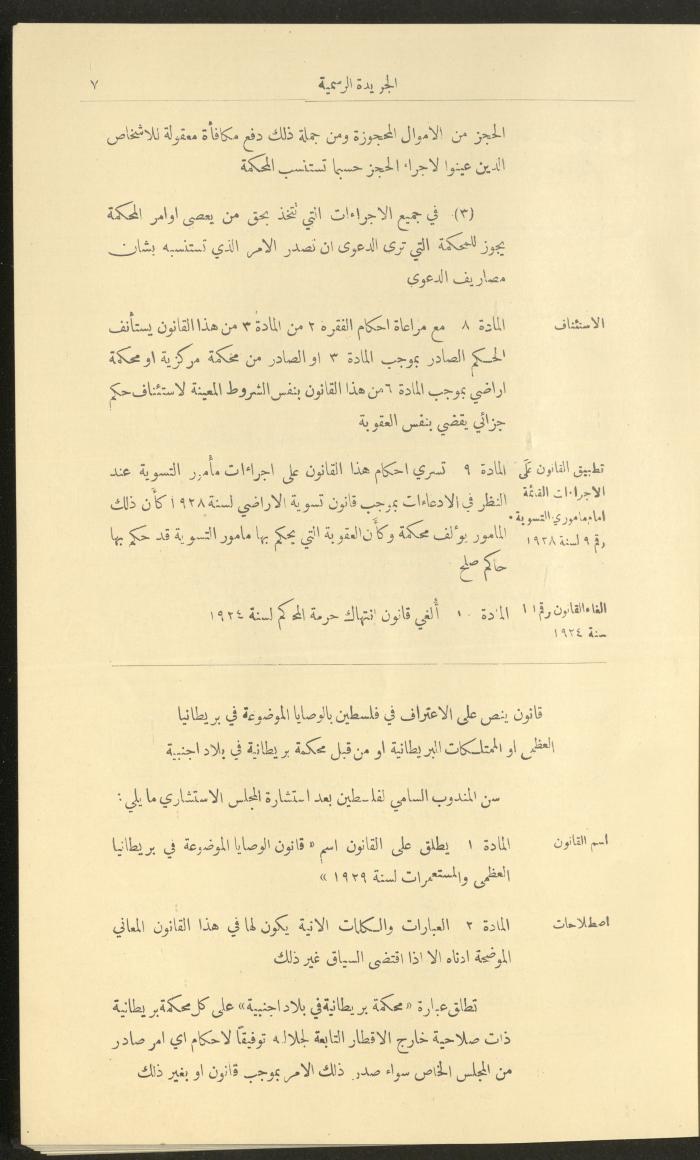 الجريدة الرسمية
٧
الحجز من الاموال المحجوزة ومن جملة ذلك دفع مكافأة معقولة للاشخاص
الذين عينوا لاجراء الحجز حسبما تستنسب المحكمة
(٣) في جميع الاجراءات التي تتخذ بحق من يعصى اوامر المحكمة
يجوز للمحكمة التي ترى الدعوى ان تصدر الامر الذي تستنسبه بشان
مصاريف الدعوى
الاستئناف
المادة ٨ مع مراعاة احكام الفقرة ٢ من المادة ٣ من هذا القانون يستأنف
الحكم الصادر بموجب المادة ٣ او الصادر من محكمة مركزية او محكمة
اراضي بموجب المادة ٦ من هذا القانون بنفس الشروط المعينة لاستئناف حكم
جزائي يقضي بنفس العقوبة
تطبيق القانون على
الاجراءات القائمة
امام ماموري التسوية
رقم ٩ لسنة ١٩٢٨
المادة ٩ تسري احكام هذا القانون على اجراءات مأمور التسوية عند
النظر في الادعاءات بموجب قانون تسوية الاراضي لسنة ١٩٢٨ كأن ذلك
المامور يؤلف محكمة وكأن العقوبة التي يحكم بها مامور التسوية قد حكم بها
حاكم صلح
الغاء القانون رقم ١١
سنة ١٩٢٤
المادة ١٠ أُلغي قانون انتهاك حرمة المحاكم لسنة ١٩٢٤
قانون ينص على الاعتراف في فلسطين بالوصايا الموضوعة في بريطانيا
العظمى او الممتلكات البريطانية او من قبل محكمة بريطانية في بلاد اجنبية
سن المندوب السامي لفلسطين بعد استشارة المجلس الاستشاري ما يلي :
اسم القانون
المادة ١ يطلق على القانون اسم « قانون الوصايا الموضوعة في بريطانيا
العظمى والمستعمرات لسنة ١٩٢٩ »
اصطلاحات
المادة ٢ العبارات والكلمات الاتية يكون لها في هذا القانون المعاني
الموضحة ادناه الا اذا اقتضى السياق غير ذلك
تطلق عبارة « محكمة بريطانية في بلاد اجنبية » على كل محكمة بريطانية
ذات صلاحية خارج الاقطار التابعة لجلالته توفيقًا لاحكام اي امر صادر
من المجلس الخاص سواء صدر ذلك الامر بموجب قانون او بغير ذلك